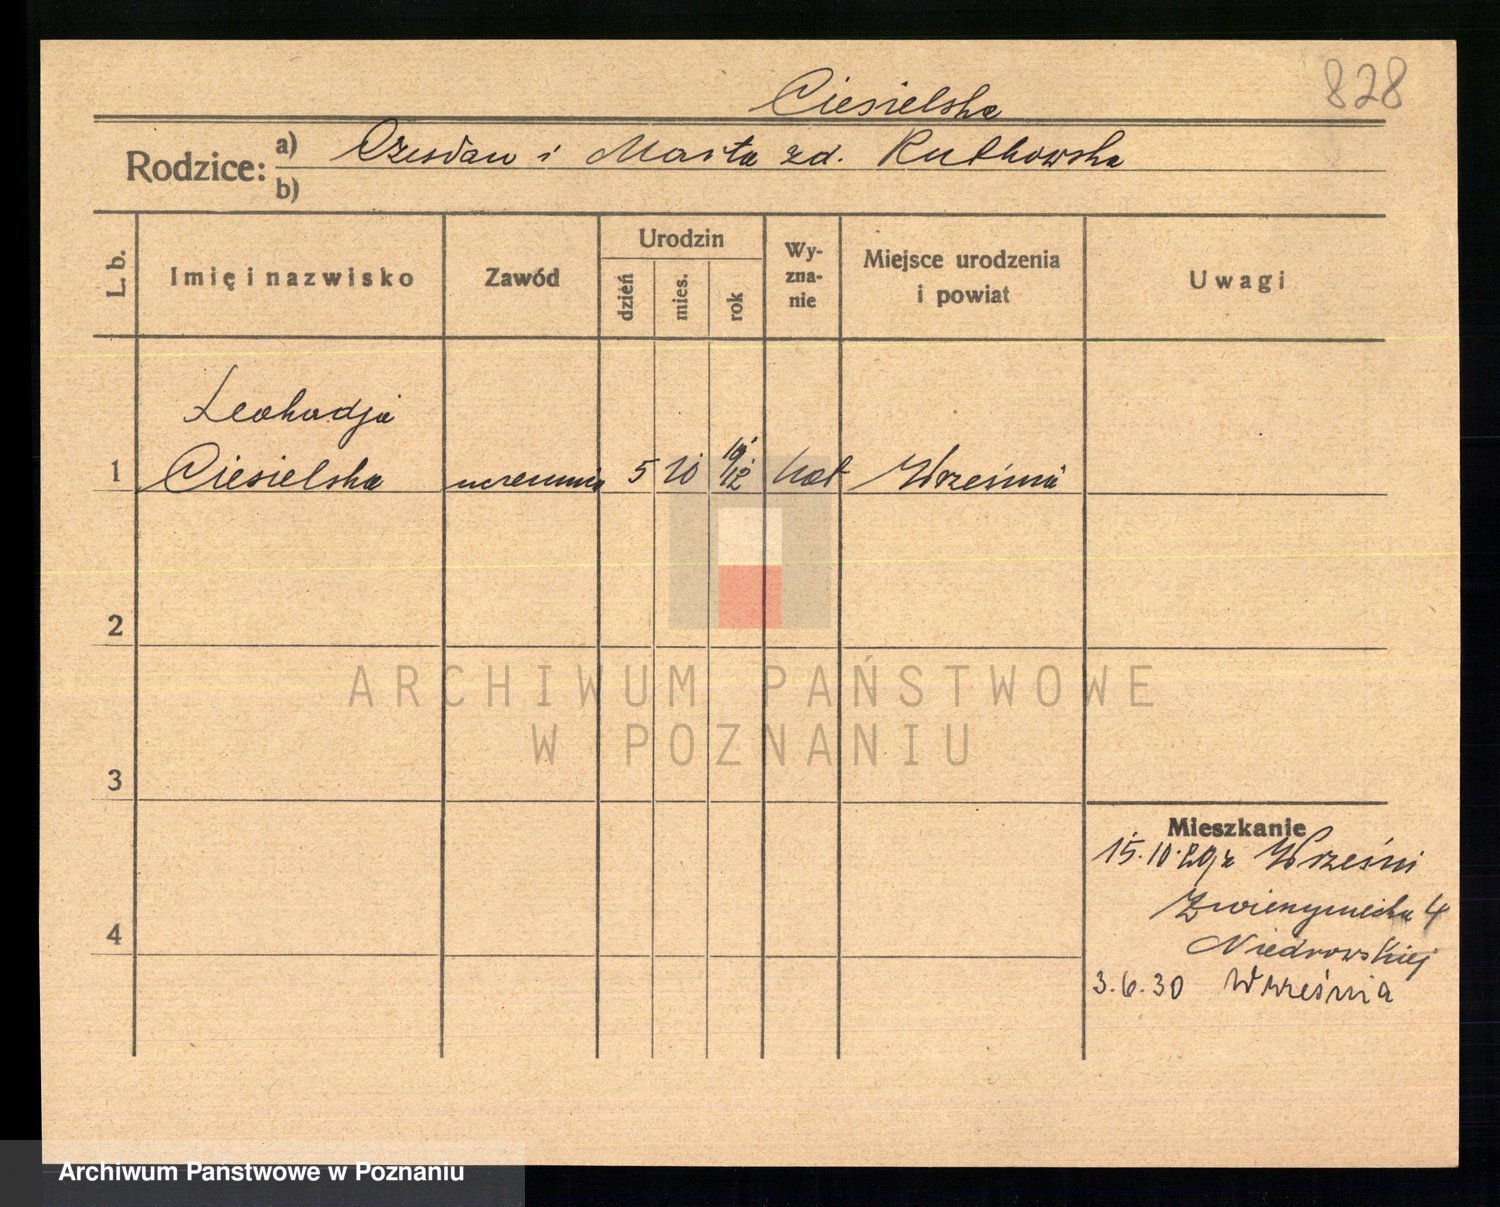 828
Ciesielska
Rodzice:
a) Czesław i Marta zd. Rutkowska
b)
L. b.
Imię i nazwisko
Zawód
Urodzin
dzień
mies.
rok
Wy-
zna-
nie
Miejsce urodzenia
i powiat
Uwagi
Leokadja
1 Ciesielska uczennica 5 10 19/12 kat Września
2
3
4
Mieszkanie
15.10.29 z Wrześni
4
3.6.30 Września
ARCHIWUM PAŃSTWOWE
W POZNANIU
Archiwum Państwowe w Poznaniu